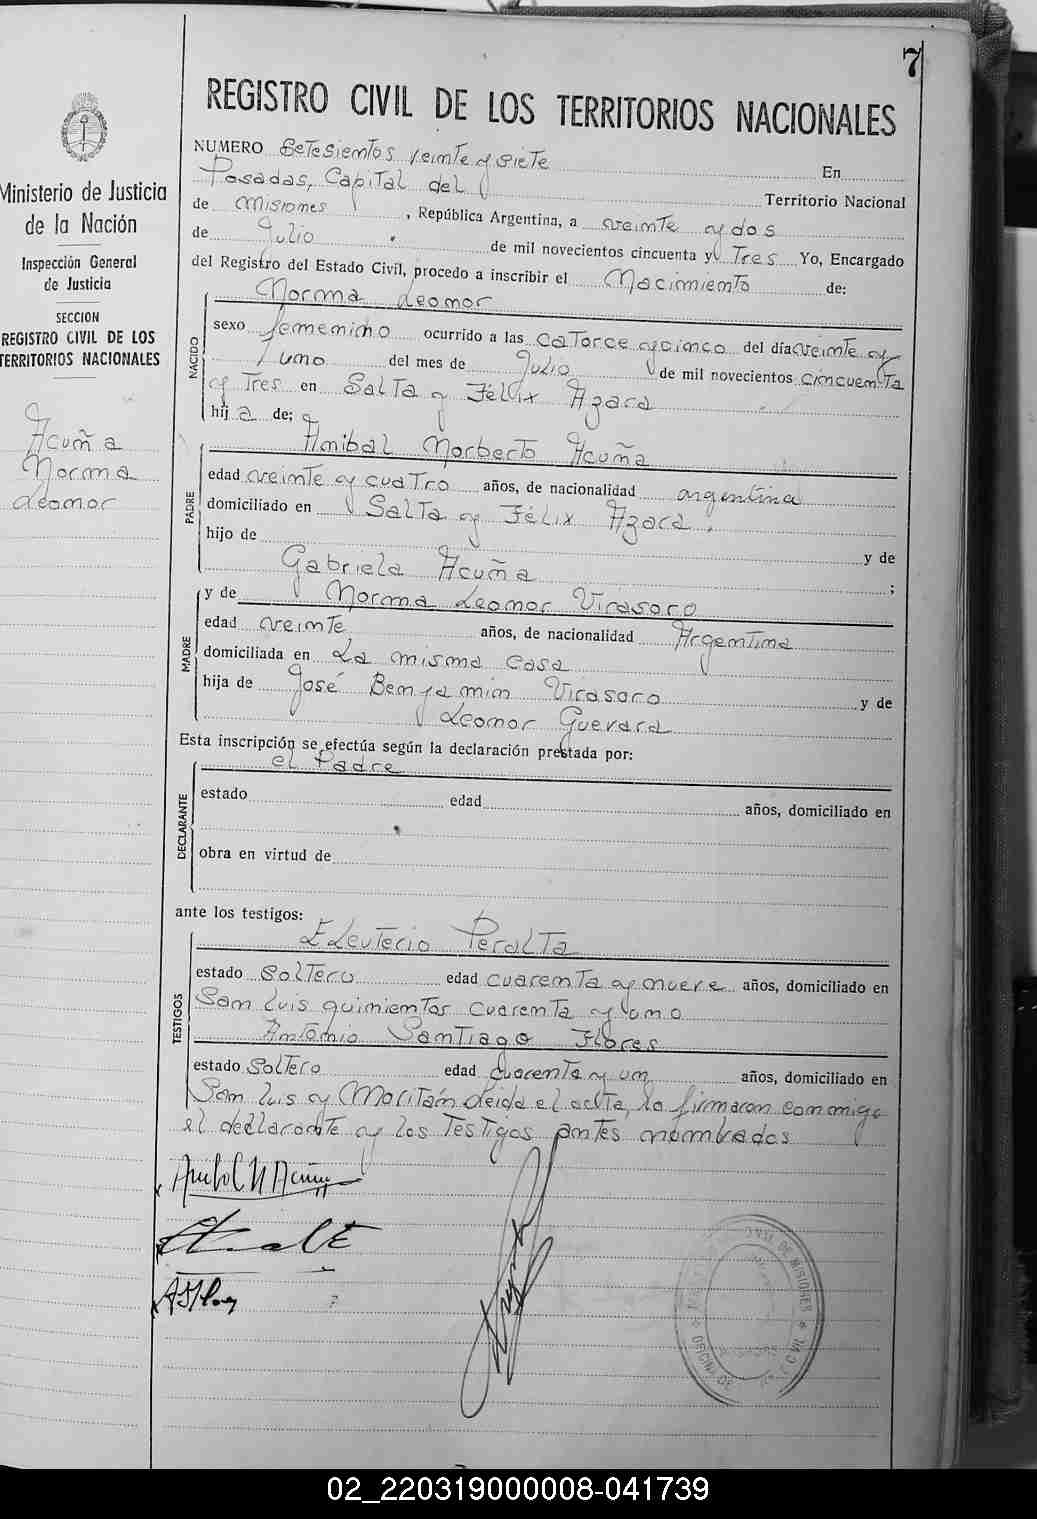 7
REGISTRO CIVIL DE LOS TERRITORIOS NACIONALES
Ministerio de Justicia
de la Nación
Inspección General
de Justicia
SECCION
REGISTRO CIVIL DE LOS
TERRITORIOS NACIONALES
Acuña
Norma
Leonor
NUMERO Setesientos veinte y siete En
Posadas, Capital del Territorio Nacional
de Misiones, República Argentina, a veinte y dos
de Julio de mil novecientos cincuenta y Tres Yo, Encargado
del Registro del Estado Civil, procedo a inscribir el Nacimiento de:
NACIDO
Norma Leonor
sexo femenino ocurrido a las catorce y cinco del día veinte y
uno del mes de Julio de mil novecientos cincuenta
y Tres en Salta y Félix Azara
hija de;
PADRE
Anibal Norberto Acuña
edad veinte y cuatro años, de nacionalidad argentina
domiciliado en Salta y Félix Azara.
hijo de y de
Gabriela Acuña ;
MADRE
y de Norma Leonor Virasoro
edad veinte años, de nacionalidad Argentina
domiciliada en La misma casa
hija de José Benjamin Virasoro y de
Leonor Guevara
Esta inscripción se efectúa según la declaración prestada por:
DECLARANTE
el Padre
estado edad años, domiciliado en
obra en virtud de
ante los testigos:
TESTIGOS
Eleuterio Peralta
estado Soltero edad cuarenta y nueve años, domiciliado en
San Luis quinientos cuarenta y uno
Antonio Santiago Flores
estado Soltero edad cuarenta y un años, domiciliado en
San Luis y Moritán Leida el acta, la firmaron conmigo
el declarante y los Testigos antes nombrados
Anibal N Acuña
OFICINA DE CIVIL DE MISIONES
02_220319000008-041739